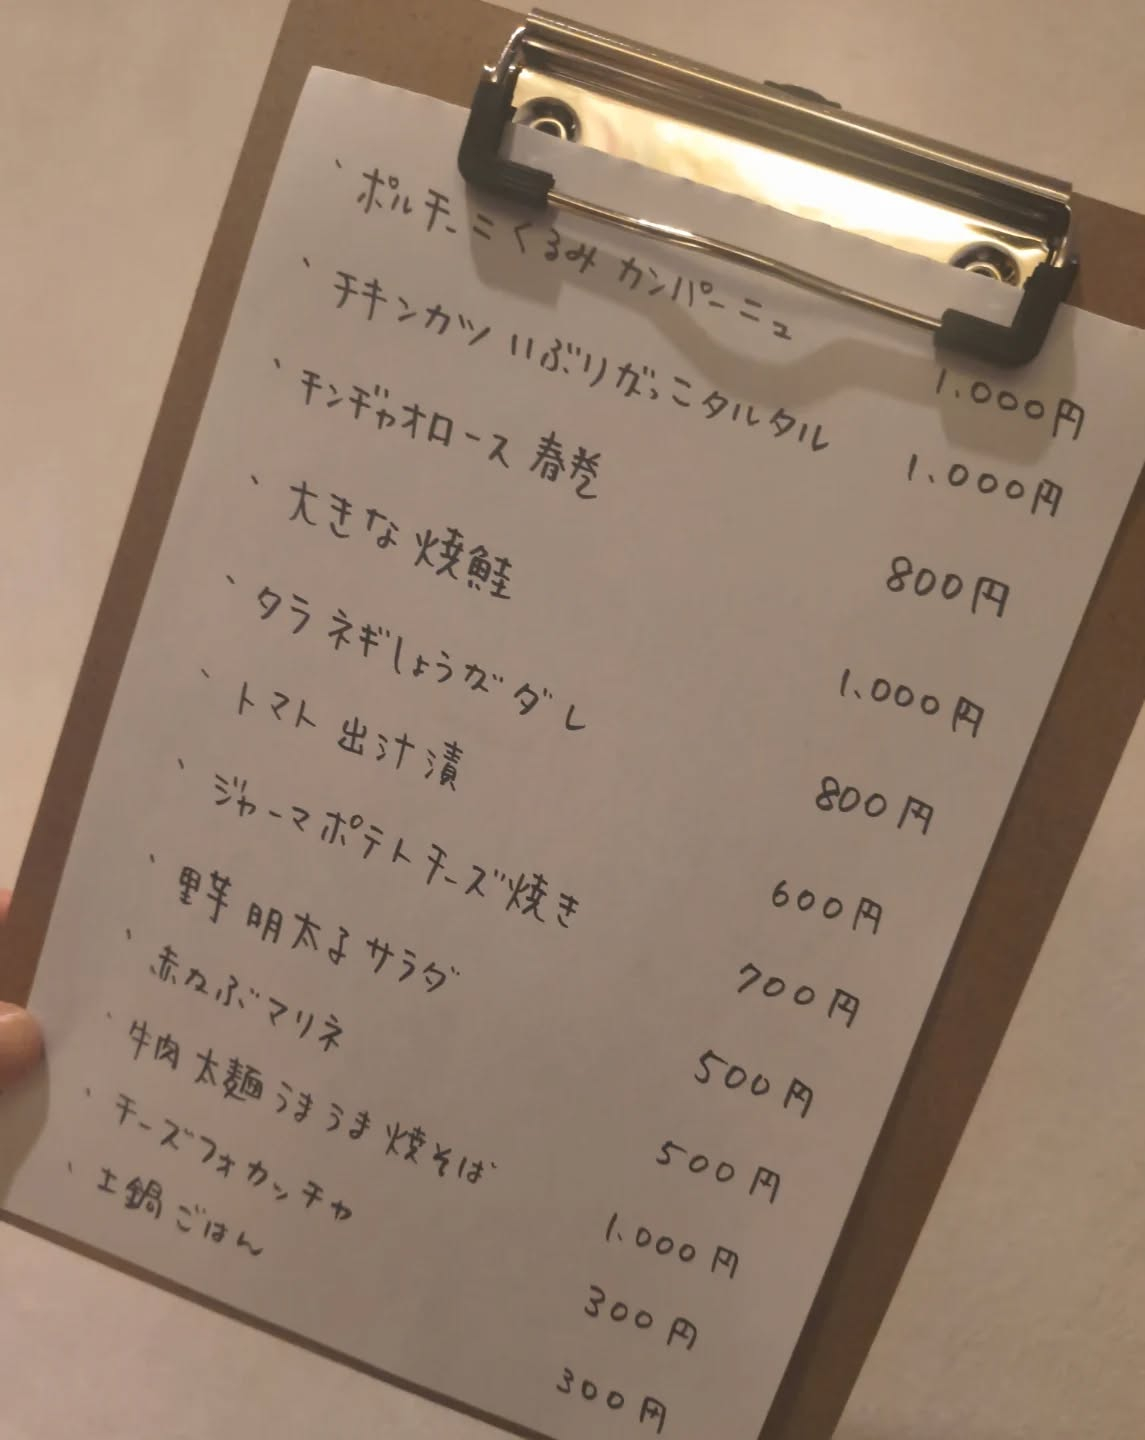 、ポルチーニくるみ カンパーニュ 1.000円
、チキンカツ いぶりがっこタルタル 1.000円
、チンヂャオロース 春巻 800円
、大きな 焼鮭 1.000円
、タラ ネギしょうがダレ 800円
、トマト 出汁漬 600円
、ジャーマポテト チーズ焼き 700円
、里芋 明太子 サラダ 500円
、赤かぶ マリネ 500円
、牛肉 太麺 うまうま 焼そば 1.000円
、チーズフォカッチャ 300円
、土鍋 ごはん 300円